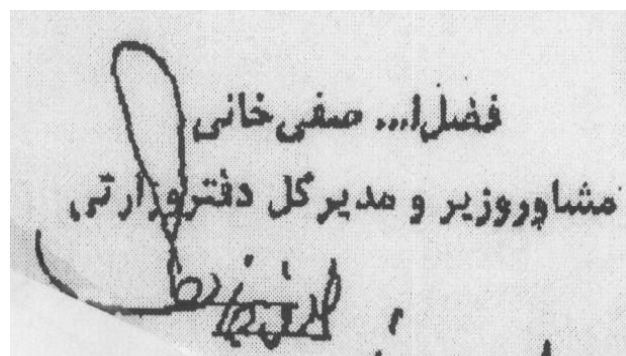 فضل‌ا... صفی‌خانی
مشاوروزیر و مدیرکل دفتروزارتی